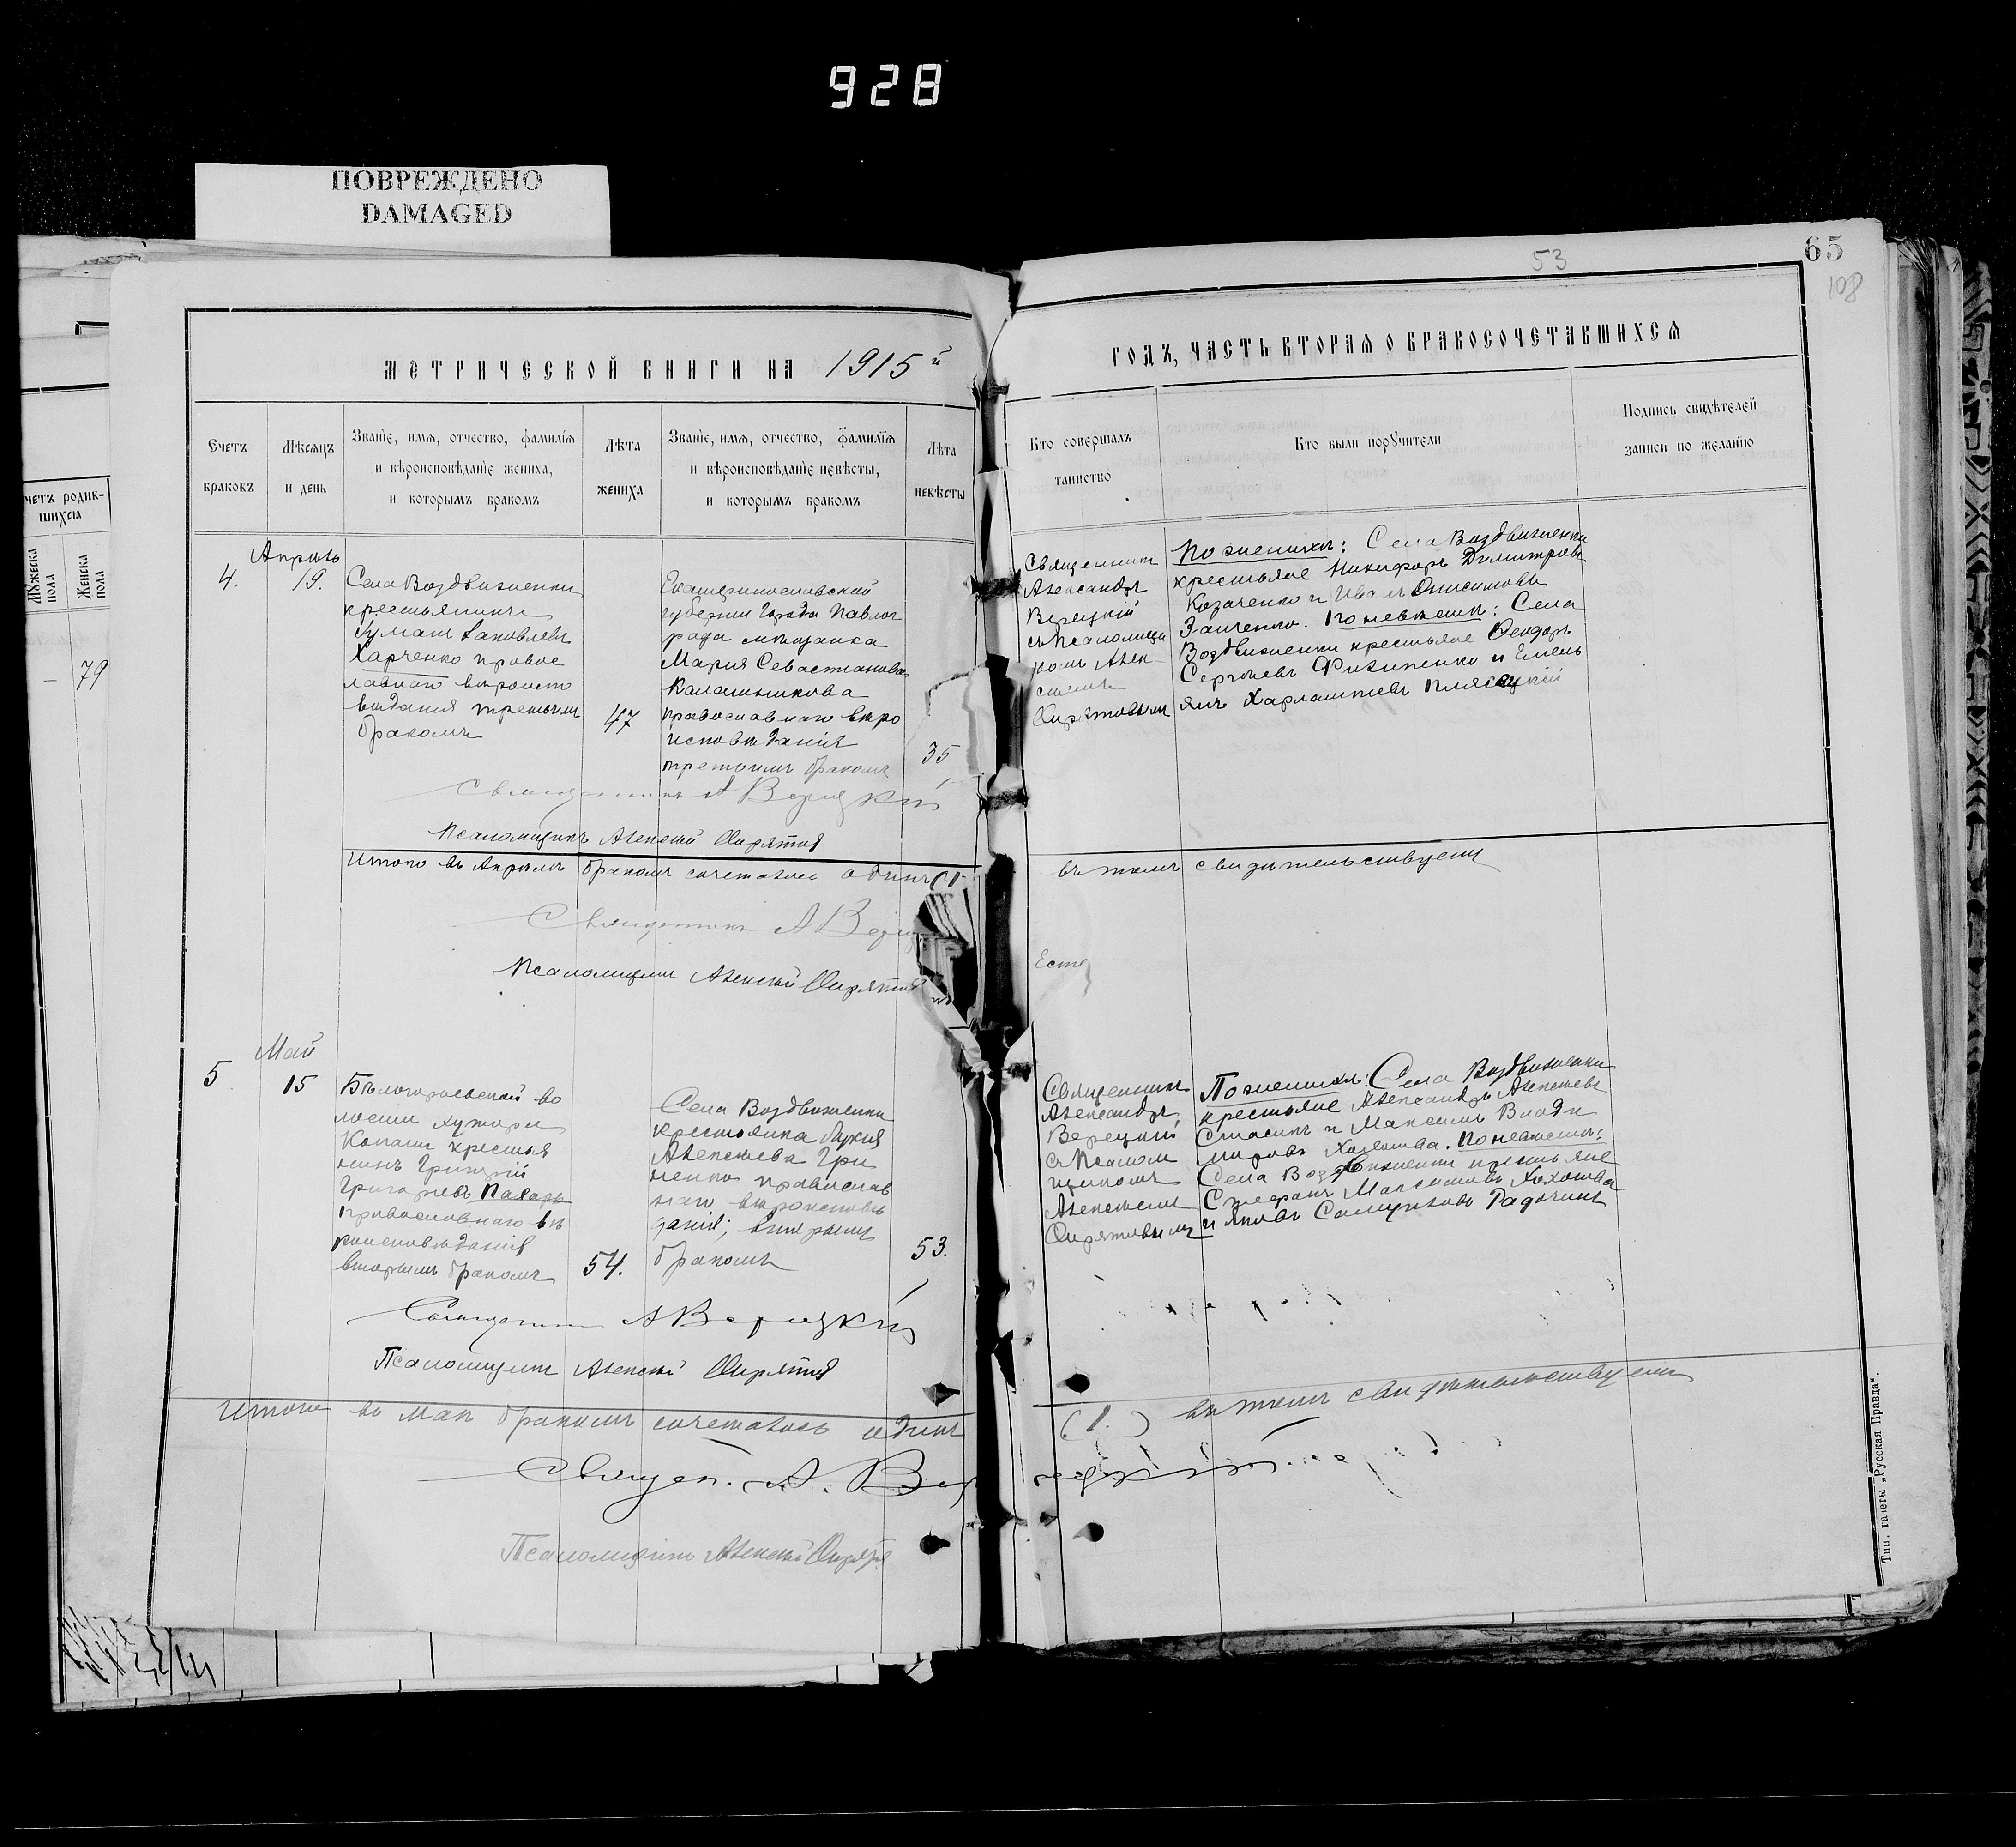 928
ПОВРЕЖДЕНО
DAMAGED
53
65
108
МЕТРИЧЕСКОЙ КНИГИ НА 1915й
ГОДЪ, ЧАСТЬ ВТОРАЯ О БРАКОСОЧЕТАВШИХСЯ
четъ родив-
шихся
Мужеска пола
Женска пола
— 79
Счетъ браковъ
Мѣсяцъ и день
Званіе, имя, отчество, фамилія
и вѣроисповѣданіе жениха,
и которымъ бракомъ
Лѣта жениха
Званіе, имя, отчество, фамилія
и вѣроисповѣданіе невѣсты,
и которымъ бракомъ
Лѣта невѣсты
Кто совершалъ
таинство
Кто были поручители
Подпись свидѣтелей
записи по желанію
Апрѣль
4.
19.
Села Воздвиженки
крестьянинъ
Яковлевъ
Харченко правос
лавнаго вѣроиспо
вѣданія третьимъ
бракомъ
47
Екатеринославской
губерніи города Павлог
рада мѣщанка
Марія Севастіанова
Калашникова
православнаго вѣро
исповѣданія
третьимъ бракомъ
35
Священникъ
Александръ
Верецкій
съ псаломщи
комъ Алек
сѣемъ
По женихѣ: Села Воздвиженки
крестьяне Никифоръ Димитріевъ
Козаченко и Иванъ Онисимовъ
Заиченко. По невѣстѣ: Села
Воздвиженки крестьяне Феодоръ
Сергѣевъ Филипенко и Емель
янъ Харлампіевъ
Священникъ А Верецкій
Псаломщикъ Алексѣй
Итого въ Апрѣлѣ бракомъ сочеталось одинъ (1
въ томъ свидѣтельствуемъ
Священникъ А Верец
Псаломщикъ Алексѣй
Май
5
15
волости хутора
Копани крестья
нинъ Григорій
Григорьевъ
православнаго вѣ
роисповѣданія
вторымъ бракомъ
54.
Села Воздвиженки
крестьянка Лукія
Алексѣева Гри
ненко православ
наго вѣроисповѣ
данія, вторымъ
бракомъ
53.
Священникъ
Александръ
Верецкій
съ Псалом
щикомъ
Алексѣемъ
По женихѣ: Села Воздвиженки
крестьяне Александръ Алексѣевъ
и Максимъ Влади
мировъ По невѣстѣ:
Села Воздвиженки крестьяне
Стефанъ Максимовъ
и Яковъ Самуиловъ
Священникъ А Верецкій
Псаломщикъ Алексѣй
Итого въ маѣ бракомъ сочеталось одинъ
(1.) въ томъ свидѣтельствуемъ
Священ. А. Верецкій
Псаломщикъ Алексѣй
Тип. газеты „Русская Правда“.